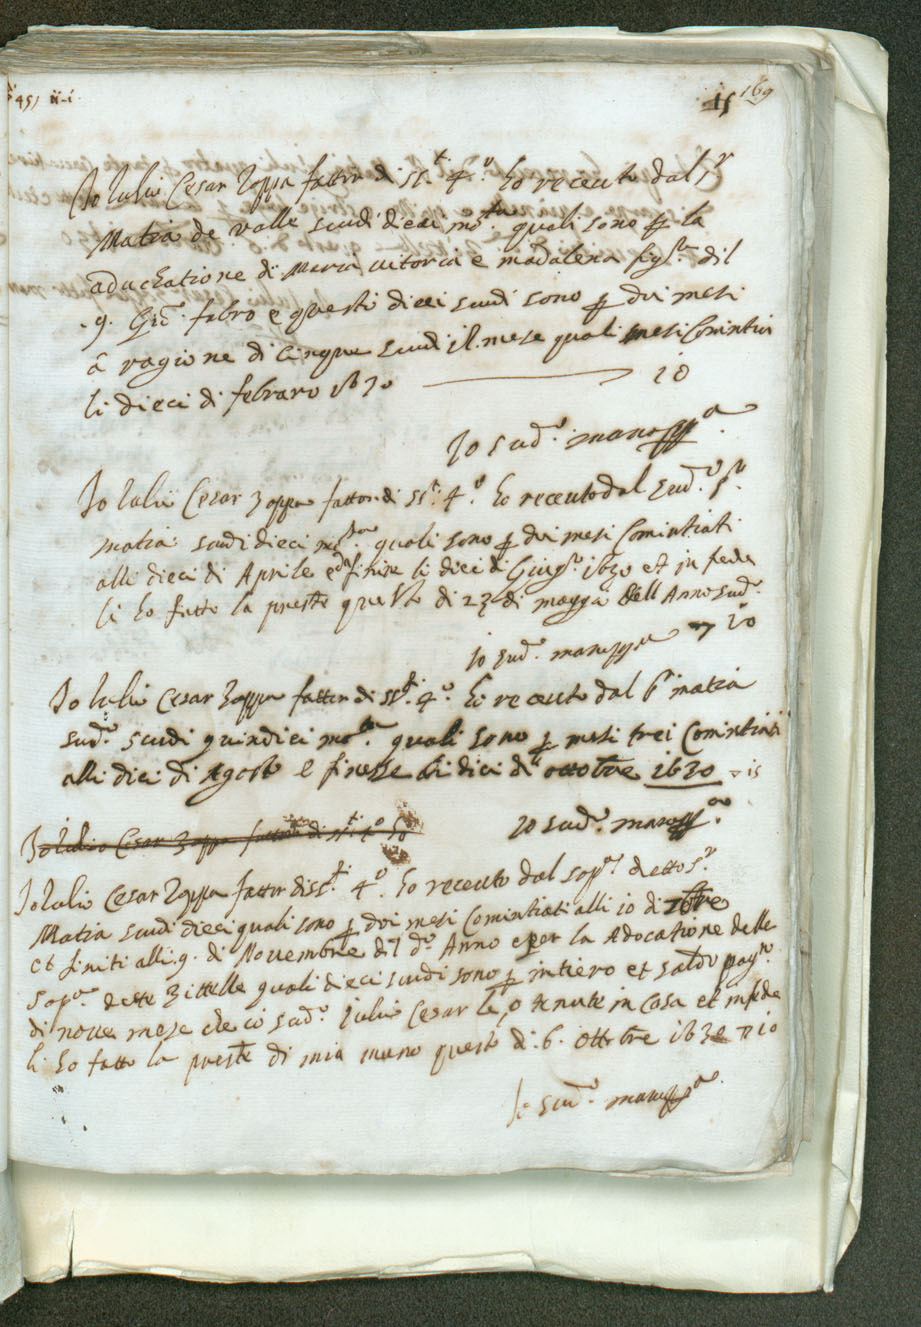 451 ii-i
15 169
Io Iulio Cesar Zoppa fattor di SSti. 4o. ho receuto dal Sr
Matia de valle scudi dieci mota. quali sono p la
aduchatione di Maria vitoria e madalena figle. dil
q. Gio. fabro e questi dieci scudi sono p doi mesi
a ragione di cinque scudi il mese quali mesi Comintia
li dieci di febraro 1630 10
Io sudo. mano ppa.
Io Iulio Cesar Zoppa fattor di SSti. 4o. ho receuto dal sudo. Sr.
matia scudi dieci mota quali sono p doi mesi Comintiati
alli dieci di Aprile e finire li dieci di Giugo. 1630 et in fede
li ho fatto la preste questo di 23 di maggio dell Anno sudo.
io sudo. mano ppa 10
Io Iulio Cesar Zoppa fattor di SSti. 4o. ho receuto dal Sr matia
sudo. scudi quindici mota. quali sono p mesi trei Comintiati
alli dici di Agosto e finesse li dici di ottobre 1630 15
Io sudo. mano ppa.
Io Iulio Cesar Zoppa fattor di SSti. 4o ho
Io Iulio Cesar Zoppa fattor di SSti. 4o ho receuto dal sopa. detto Sr
Matia scudi dieci quali sono p doi mesi Comintiati alli 10 di
et finiti alli .9. di Novembre dil do. Anno e per la Adocatione delle
sopa. dette Zittelle quali dieci scudi sono p intiero et saldo pagto.
di nove mese che io sudo. Iulio Cesar le o tenute in Casa et in fede
li ho fatto la preste di mia mano questo di .6. ottobre 1630 10
Io sudo. mano ppa.